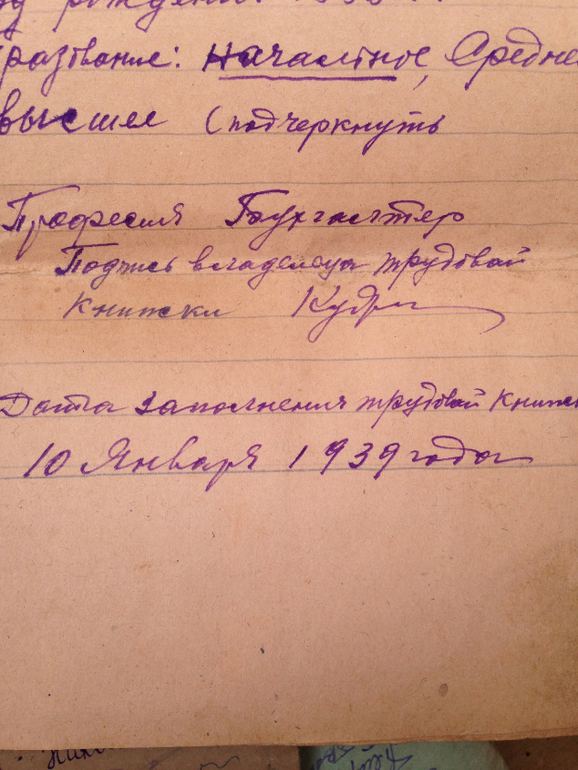 рождения
разование: Начальное, Средне
высшее (подчеркнуть
Професия Бухгалтер
Подпись владельца трудовой
Книжки Кудри
Дата заполнения трудовой Книжк
10 Января 1939 года